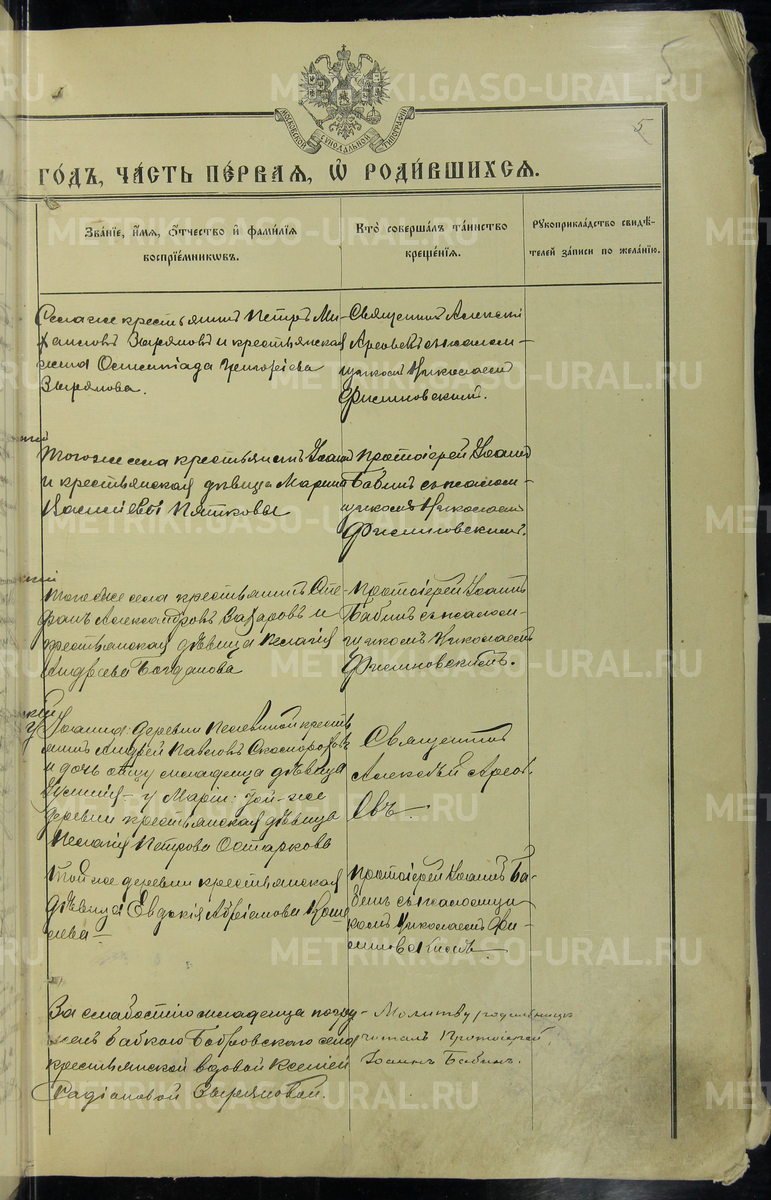 5
5
МОСКОВСКОЙ СѴНОДАЛЬНОЙ ТИПОГРАФІИ
ГО́ДЪ, ЧА́СТЬ ПЕ́РВАЯ, Ѡ҆ РОДИ́ВШИХСѦ.
Зва́нїе, и҆́мѧ, ѻ҆́тчество и҆ фами́лїѧ
воспрїе́мникѡвъ.
Кто̀ соверша́лъ та́инство
креще́нїѧ.
Рꙋкоприкла́дство свидѣ́-
телей за́писи по жела́нїю.
Села же крестьянинъ Петръ Ми-
хаиловъ Зыряновъ и крестьянская
жена Григоріева
Зырянова.
Священникъ Алексій
Арефьевъ съ псалом-
щикомъ Николаемъ
Филиновскимъ.
Того же села крестьянинъ Иванъ
и крестьянская дѣвица Марина
Васильевы Пятковы
Протоіерей Іоаннъ
Бабинъ съ псалом-
щикомъ Николаемъ
Филиновскимъ.
Того же села крестьянинъ Сте-
фанъ Александровъ Захаровъ и
крестьянская дѣвица Пелагія
Андреева Богданова
Протоіерей Іоаннъ
Бабинъ съ псалом-
щикомъ Николаемъ
Филиновскимъ.
У Іоанна: деревни крестья-
нинъ Андрей Павловъ
и дочь отцу младенца дѣвица
у Маріи: той-же
деревни крестьянская дѣвица
Пелагія Петрова
Священникъ
Алексѣй Арефь-
евъ.
Той же деревни крестьянская
дѣвица Евдокія
Протоіерей Іоаннъ Ба-
бинъ съ псаломщи-
комъ Николаемъ Фи-
линовскимъ.
За слабостію младенца погру-
женъ бабкою Бобровскаго села
крестьянской вдовой Ксеніей
Зыряновой.
Молитву родильницѣ
читалъ Протоіерей
Іоаннъ Бабинъ.
METRIKI.GASO-URAL.RU